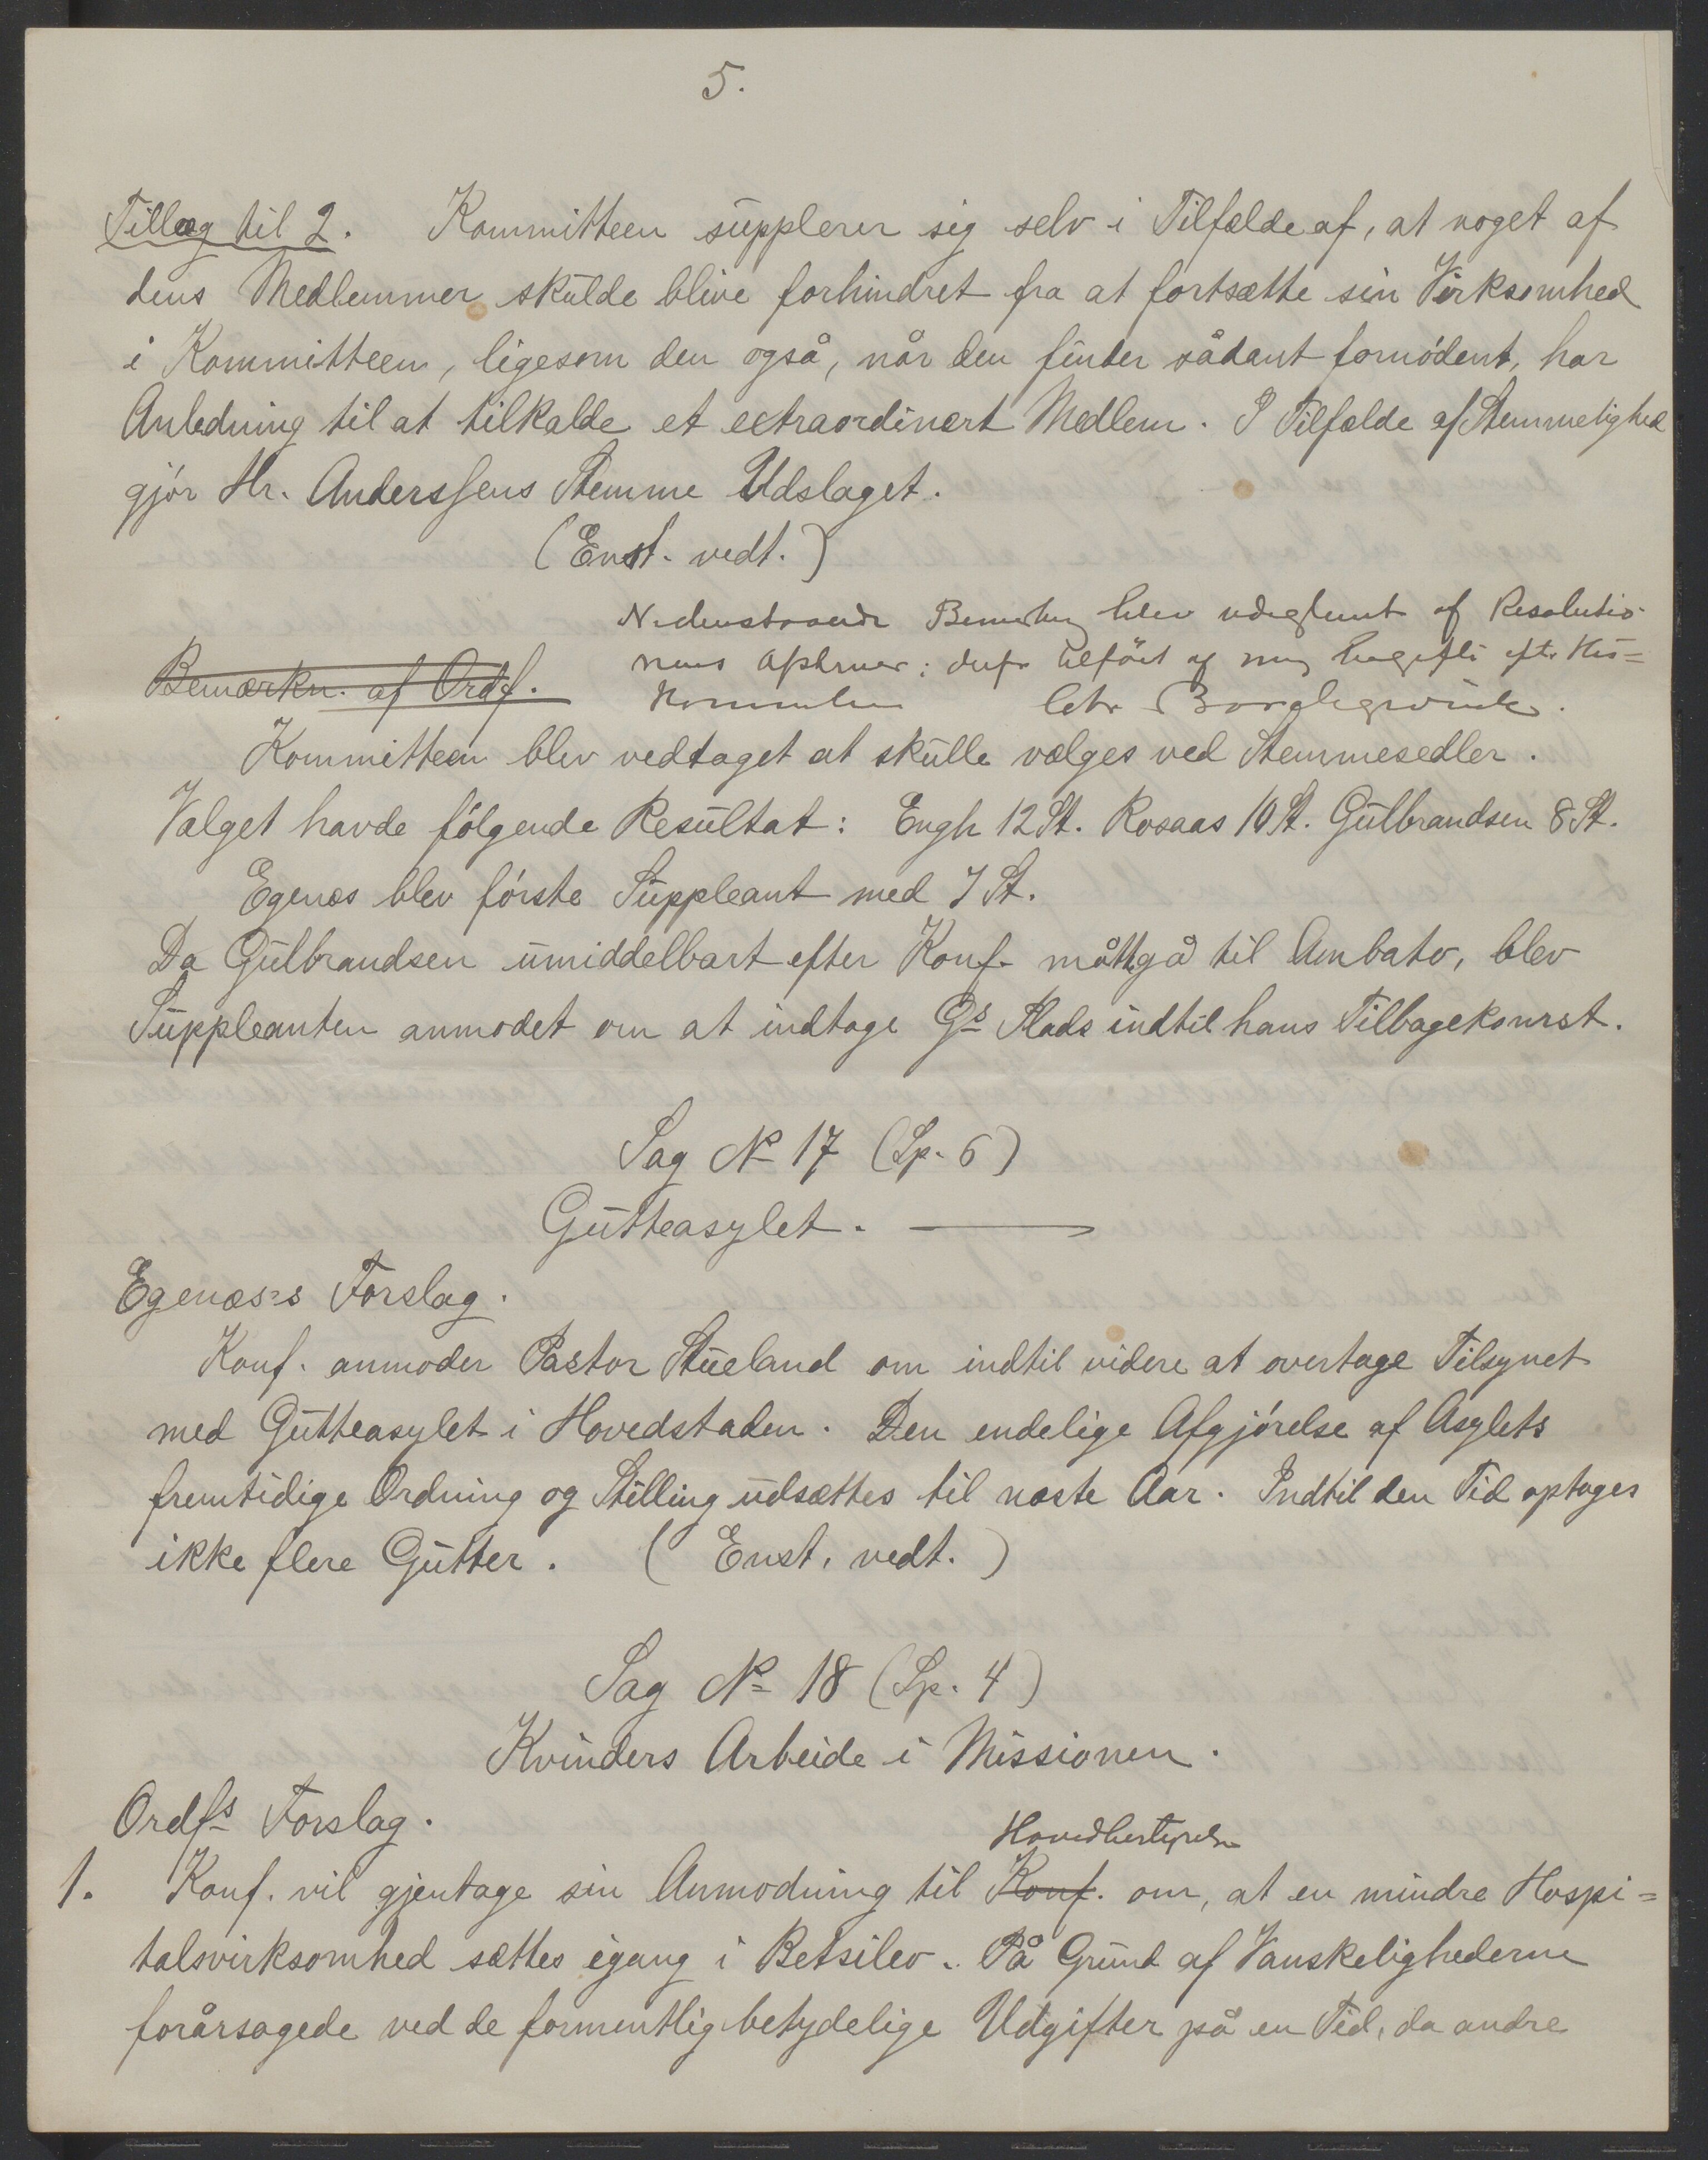 5.
Tillæg til 2. Kommitteen supplerer sig selv i Tilfælde af, at noget af
dens Medlemmer skulde blive forhindret fra at fortsætte sin Virksomhed
i Kommitteen, ligesom den også, når den finder sådant fornødent, har
Anledning til at tilkalde et extraordinært Medlem. I Tilfælde af Stemmelighed
gjør Hr. Anderssens Stemme Udslaget.
(Enst. vedt.)
Nedenstaaende Bemerkning blev udeglemt af Resolutio-
nens ; derfor tilføiet af mig efter
Bemærkn. af Ordf.
Chr Borchgrevink.
Kommitteen blev vedtaget at skulle vælges ved Stemmesedler.
Valget havde følgende Resultat: Engh 12 St. Rosaas 10 St. Gulbrandsen 8 St.
Egenæs blev første Suppleant med 7 St.
Da Gulbrandsen umiddelbart efter Konf. måtte gå til Ambato, blev
Suppleanten anmodet om at indtage Gs Plads indtil hans Tilbagekomst.
Sag No 17 (Sp. 6)
Gutteasylet.
Egenæs's Forslag.
Konf. anmoder Pastor Stueland om indtil videre at overtage Tilsynet
med Gutteasylet i Hovedstaden. Den endelige Afgjørelse af Asylets
fremtidige Ordning og Stilling udsættes til næste Aar. Indtil den Tid optages
ikke flere Gutter. (Enst. vedt.)
Sag No 18 (Sp. 4)
Kvinders Arbeide i Missionen.
Ordfs Forslag.
Hovedbestyrelsen
1. Konf. vil gjentage sin Anmodning til Konf. om, at en mindre Hospi=
talsvirksomhed sættes igang i Betsileo. På Grund af Vanskelighederne
forårsagede ved de formentlig betydelige Udgifter på en Tid, da andre